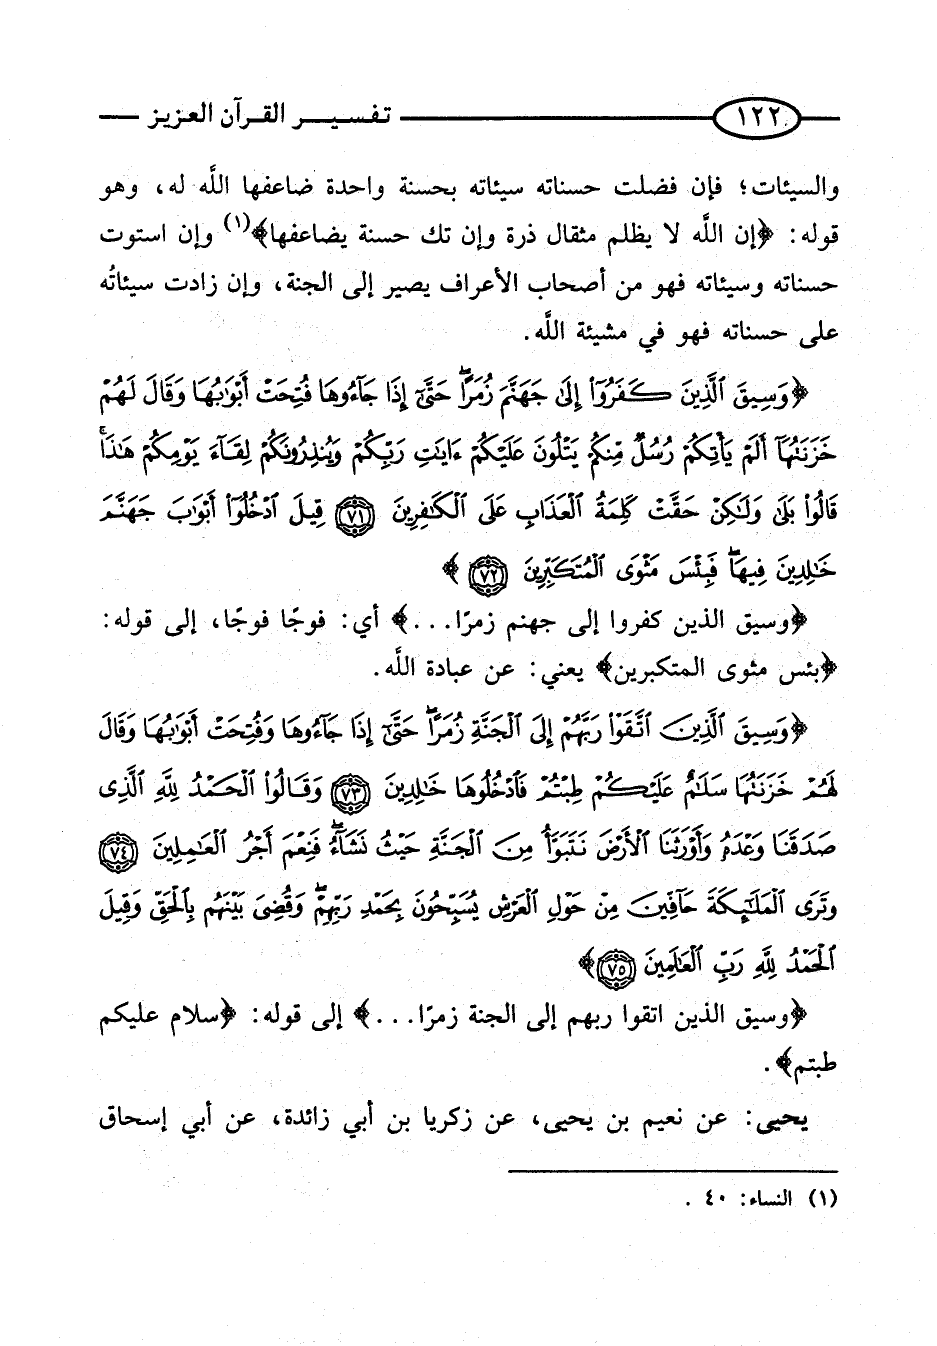 ١٢٢ تفسير القرآن العزيز
والسيئات؛ فإن فضلت حسناته سيئاته بحسنة واحدة ضاعفها اللَّه له، وهو
قوله: ﴿إن اللَّه لا يظلم مثقال ذرة وإن تك حسنة يضاعفها﴾(١) وإن استوت
حسناته وسيئاته فهو من أصحاب الأعراف يصير إلى الجنة، وإن زادت سيئاتُه
على حسناته فهو في مشيئة اللَّه.
﴿وَسِيقَ ٱلَّذِينَ كَفَرُوٓا۟ إِلَىٰ جَهَنَّمَ زُمَرًا ۖ حَتَّىٰٓ إِذَا جَآءُوهَا فُتِحَتْ أَبْوَٰبُهَا وَقَالَ لَهُمْ
خَزَنَتُهَآ أَلَمْ يَأْتِكُمْ رُسُلٌ مِّنكُمْ يَتْلُونَ عَلَيْكُمْ ءَايَٰتِ رَبِّكُمْ وَيُنذِرُونَكُمْ لِقَآءَ يَوْمِكُمْ هَٰذَا ۚ
قَالُوا۟ بَلَىٰ وَلَٰكِنْ حَقَّتْ كَلِمَةُ ٱلْعَذَابِ عَلَى ٱلْكَٰفِرِينَ ٧١ قِيلَ ٱدْخُلُوٓا۟ أَبْوَٰبَ جَهَنَّمَ
خَٰلِدِينَ فِيهَا ۖ فَبِئْسَ مَثْوَى ٱلْمُتَكَبِّرِينَ ٧٢﴾
﴿وسيق الذين كفروا إلى جهنم زمرًا...﴾ أي: فوجًا فوجًا، إلى قوله:
﴿بئس مثوى المتكبرين﴾ يعني: عن عبادة اللَّه.
﴿وَسِيقَ ٱلَّذِينَ ٱتَّقَوْا۟ رَبَّهُمْ إِلَى ٱلْجَنَّةِ زُمَرًا ۖ حَتَّىٰٓ إِذَا جَآءُوهَا وَفُتِحَتْ أَبْوَٰبُهَا وَقَالَ
لَهُمْ خَزَنَتُهَا سَلَٰمٌ عَلَيْكُمْ طِبْتُمْ فَٱدْخُلُوهَا خَٰلِدِينَ ٧٣ وَقَالُوا۟ ٱلْحَمْدُ لِلَّهِ ٱلَّذِى
صَدَقَنَا وَعْدَهُۥ وَأَوْرَثَنَا ٱلْأَرْضَ نَتَبَوَّأُ مِنَ ٱلْجَنَّةِ حَيْثُ نَشَآءُ ۖ فَنِعْمَ أَجْرُ ٱلْعَٰمِلِينَ ٧٤
وَتَرَى ٱلْمَلَٰٓئِكَةَ حَآفِّينَ مِنْ حَوْلِ ٱلْعَرْشِ يُسَبِّحُونَ بِحَمْدِ رَبِّهِمْ ۖ وَقُضِىَ بَيْنَهُم بِٱلْحَقِّ وَقِيلَ
ٱلْحَمْدُ لِلَّهِ رَبِّ ٱلْعَٰلَمِينَ ٧٥﴾
﴿وسيق الذين اتقوا ربهم إلى الجنة زمرًا...﴾ إلى قوله: ﴿سلام عليكم
طبتم﴾.
يحيى: عن نعيم بن يحيى، عن زكريا بن أبي زائدة، عن أبي إسحاق
(١) النساء: ٤٠ .